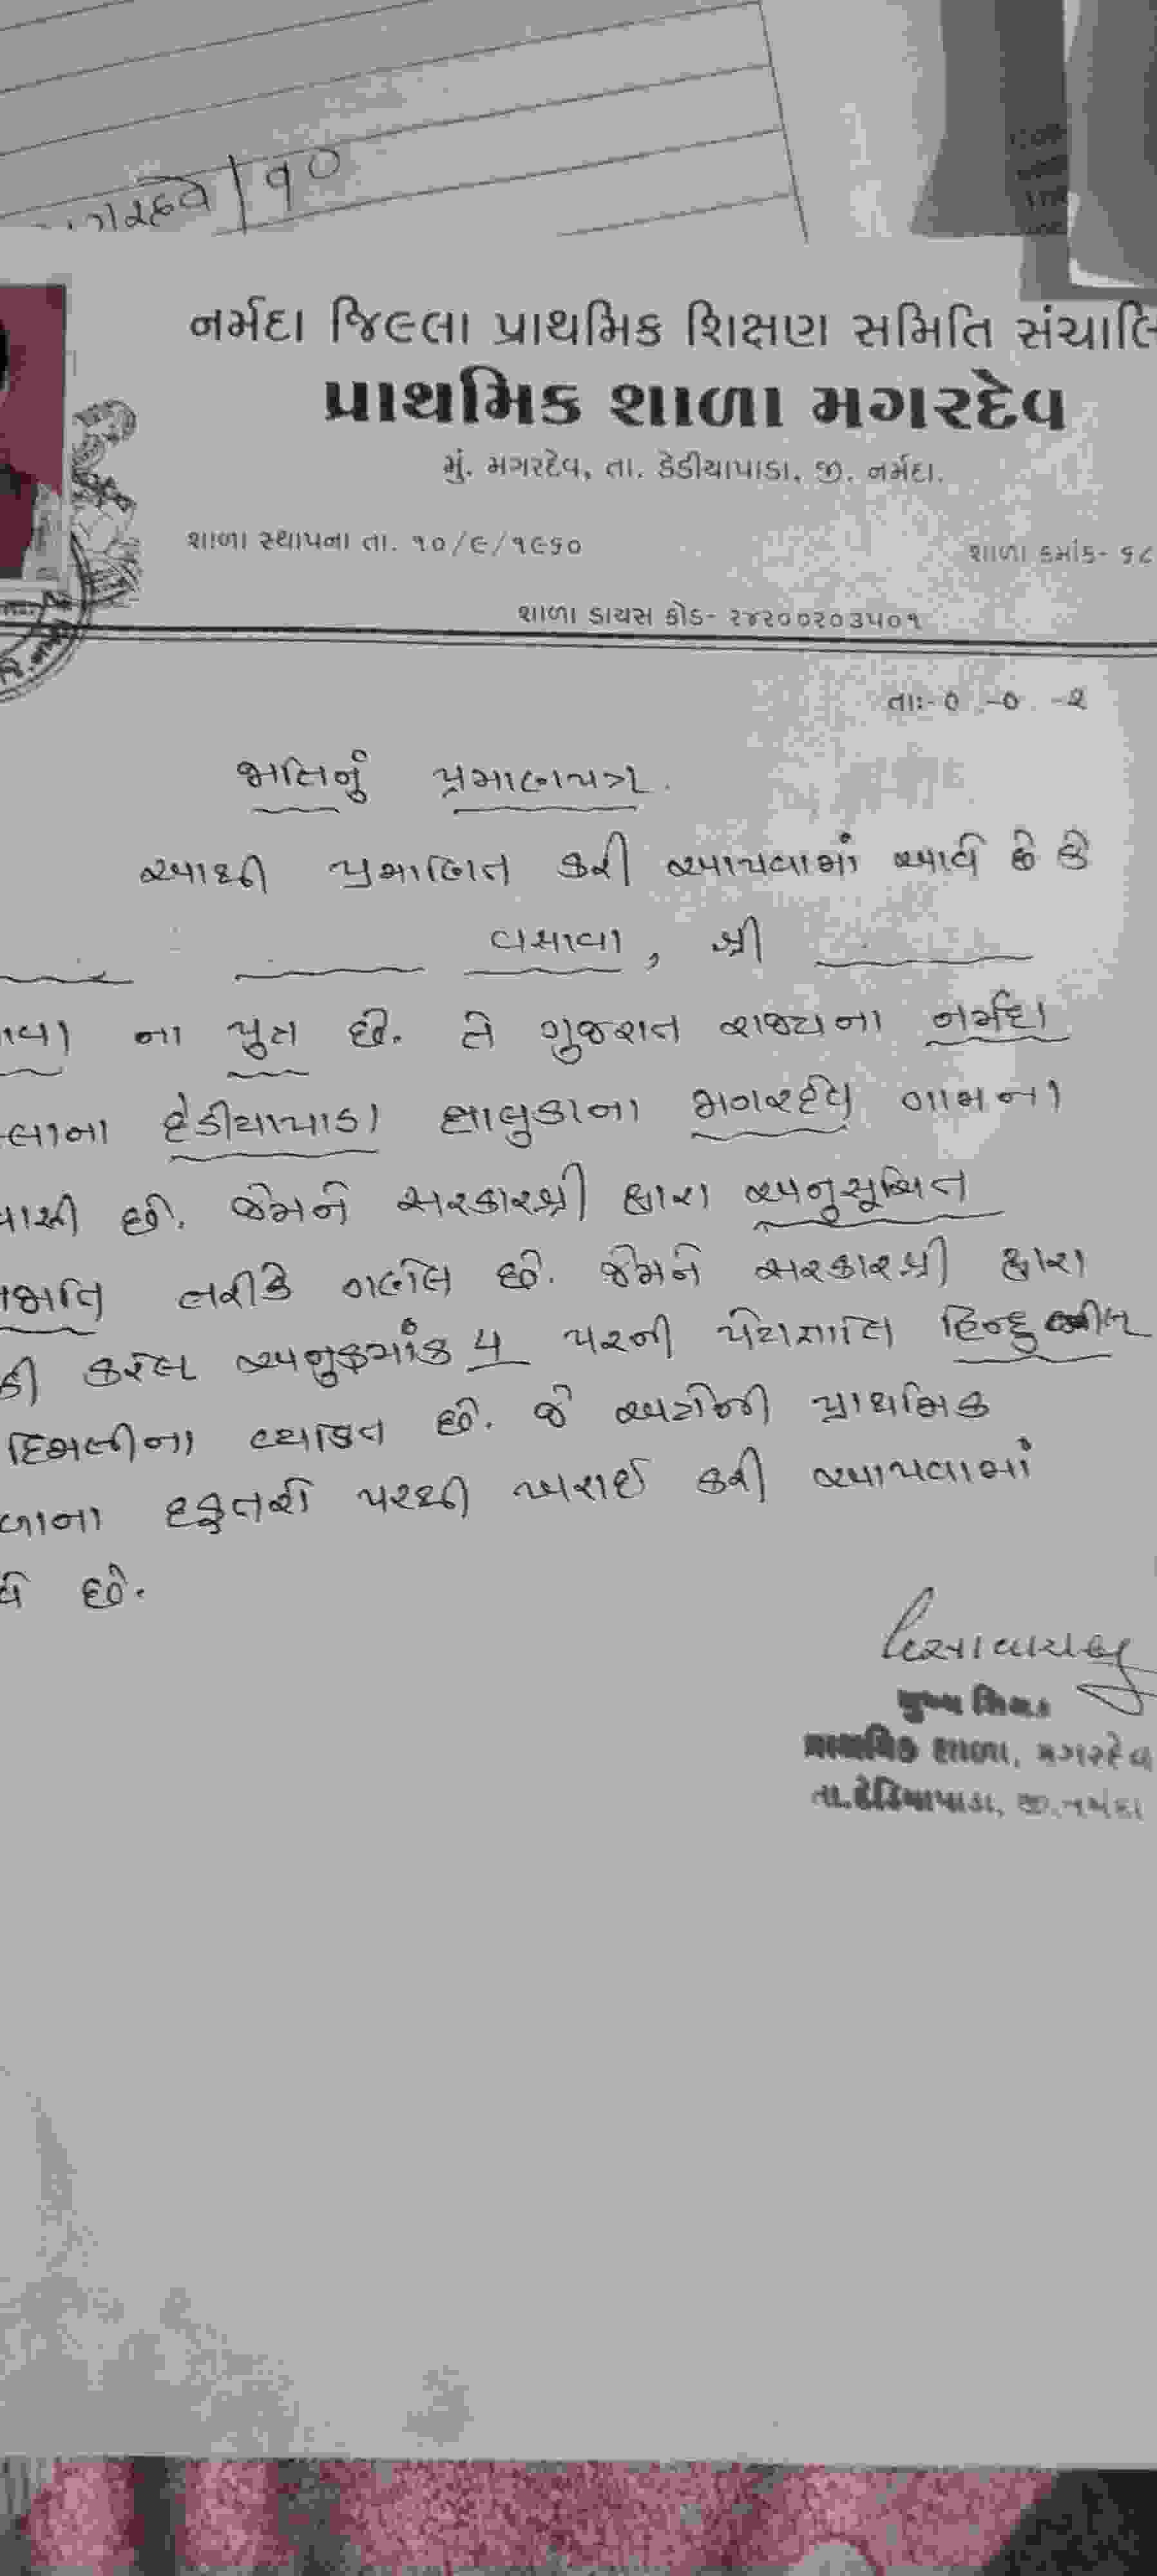 ગરદેવ/૧૦
નર્મદા જિલ્લા પ્રાથમિક શિક્ષણ સમિતિ સંચાલિ
પ્રાથમિક શાળા મગરદેવ
મું. મગરદેવ, તા. ડેડીયાપાડા, જી. નર્મદા.
શાળા સ્થાપના તા. ૧૦/૯/૧૯૬૦
શાળા ક્રમાંક- ૬૮
શાળા ડાયસ કોડ- ૨૪૨૦૦૨૦૩૫૦૧
તા:-૦ -૦ -૨
જાતિનું પ્રમાણપત્ર.
આથી પ્રમાણિત કરી આપવામાં આવે છે કે
વસાવા, શ્રી
ાવા ના પુત્ર છે. તે ગુજરાત રાજ્યના નર્મદા
લ્લાના દેડીયાપાડા તાલુકાના મગરદેવ ગામના
વાસી છે. જેમને સરકારશ્રી દ્વારા અનુસૂચિત
જાતિ તરીકે ગણેલ છે. જેમને સરકારશ્રી દ્વારા
કી કરેલ અનુક્રમાંક ૫ પરની પેટાજ્ઞાતિ હિન્દુ ભીલ
દિમલીના વ્યકિત છે. જે અત્રેની પ્રાથમિક
ળાના દફતરી પરથી ખરાઈ કરી આપવામાં
વે છે.
મુખ્ય શિક્ષક
પ્રાથમિક શાળા, મગરદેવ
તા.દેડિયાપાડા, જી.નર્મદા